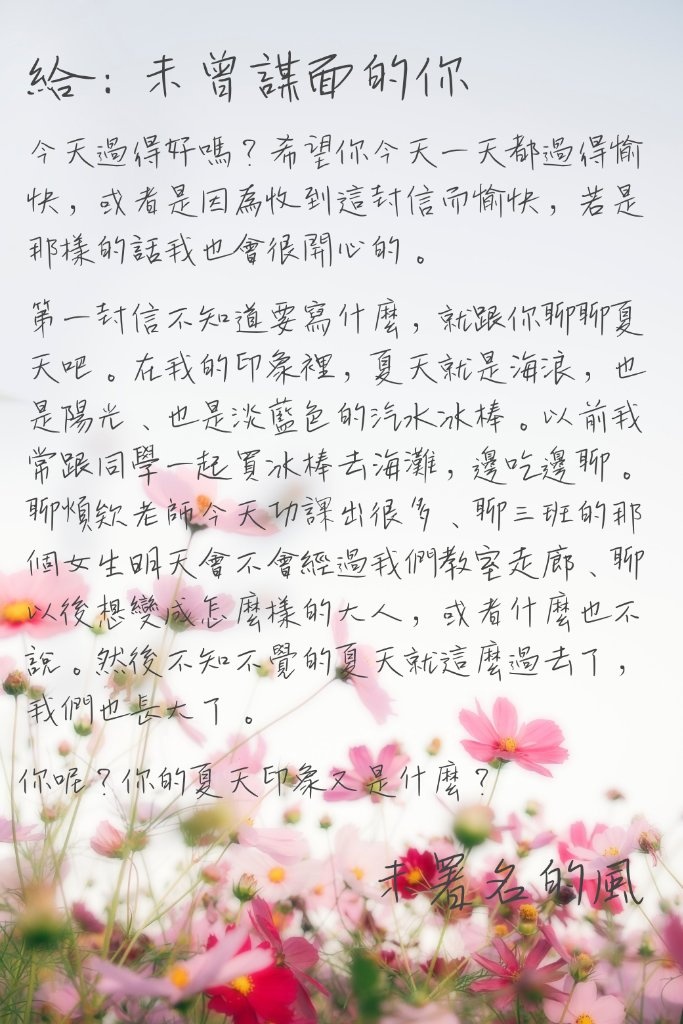 給：未曾謀面的你
今天過得好嗎？希望你今天一天都過得愉
快，或者是因為收到這封信而愉快，若是
那樣的話我也會很開心的。
第一封信不知道要寫什麼，就跟你聊聊夏
天吧。在我的印象裡，夏天就是海浪，也
是陽光、也是淡藍色的汽水冰棒。以前我
常跟同學一起買冰棒去海灘，邊吃邊聊。
聊煩欸老師今天功課出很多、聊三班的那
個女生明天會不會經過我們教室走廊、聊
以後想變成怎麼樣的大人，或者什麼也不
說。然後不知不覺的夏天就這麼過去了，
我們也長大了。
你呢？你的夏天印象又是什麼？
未署名的風